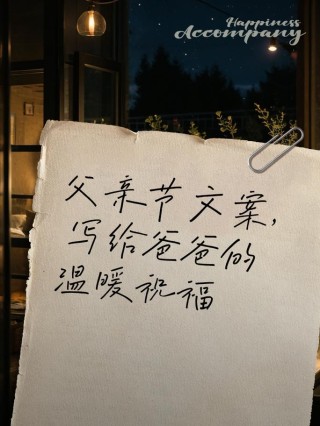 Happiness
Accompany
父亲节文案，
写给爸爸的
温暖祝福